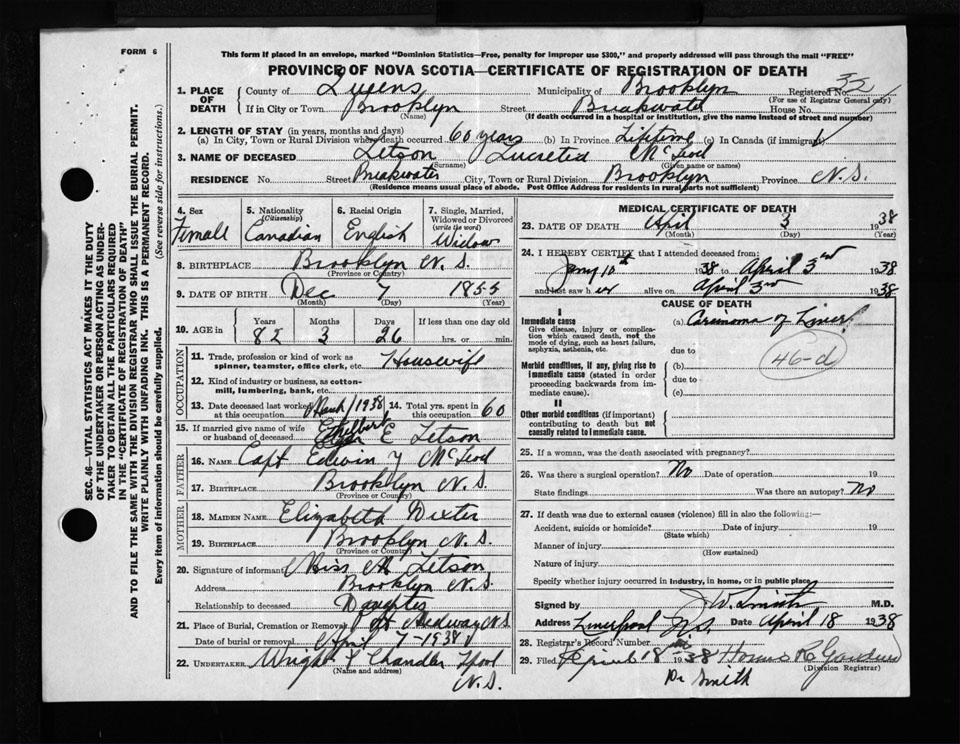 FORM 6
This form if placed in an envelope, marked "Dominion Statistics—Free, penalty for improper use $300," and properly addressed will pass through the mail "FREE"
PROVINCE OF NOVA SCOTIA—CERTIFICATE OF REGISTRATION OF DEATH
1. PLACE OF DEATH County of Queens Municipality of Brooklyn Registered No. 32
(For use of Registrar General only)
If in City or Town Brooklyn Street Breakwater House No.
(Name) (If death occurred in a hospital or institution, give the name instead of street and number)
2. LENGTH OF STAY (in years, months and days)
(a) In City, Town or Rural Division where death occurred 60 years (b) In Province Lifetime (c) In Canada (if immigrant)
3. NAME OF DECEASED Letson Lucretia McLeod
(Surname) (Given name or names)
RESIDENCE No. Street Breakwater City, Town or Rural Division Brooklyn Province N.S.
(Residence means usual place of abode. Post Office Address for residents in rural parts not sufficient)
4. Sex Female
5. Nationality (Citizenship) Canadian
6. Racial Origin English
7. Single, Married, Widowed or Divorced (write the word) Widow
8. BIRTHPLACE Brooklyn N.S.
(Province or Country)
9. DATE OF BIRTH Dec 7 1855
(Month) (Day) (Year)
10. AGE in Years Months Days If less than one day old
82 3 26 hrs. or min.
OCCUPATION
11. Trade, profession or kind of work as spinner, teamster, office clerk, etc. Housewife
12. Kind of industry or business, as cotton-mill, lumbering, bank, etc.
13. Date deceased last worked at this occupation March/1938 14. Total yrs. spent in this occupation 60
15. If married give name of wife or husband of deceased Ethelbert E Letson
FATHER
16. NAME Capt Edwin McLeod
17. BIRTHPLACE Brooklyn N.S.
(Province or Country)
MOTHER
18. MAIDEN NAME Elizabeth Dexter
19. BIRTHPLACE Brooklyn N.S.
(Province or Country)
20. Signature of informant Miss M Letson
Address Brooklyn N.S.
Relationship to deceased Daughter
21. Place of Burial, Cremation or Removal Pt Medway N.S
Date of burial or removal April 7-1938
22. UNDERTAKER Wright & Chandler Lpool
N.S.
MEDICAL CERTIFICATE OF DEATH
23. DATE OF DEATH April 3 1938
(Month) (Day) (Year)
24. I HEREBY CERTIFY that I attended deceased from:
Jany 10th 1938 to April 3rd 1938
and last saw her alive on April 3rd 1938
CAUSE OF DEATH
I
Immediate cause (a) Carcinoma of Liver
Give disease, injury or complication which caused death, not the mode of dying, such as heart failure, asphyxia, asthenia, etc.
46-d
due to
Morbid conditions, if any, giving rise to immediate cause (stated in order proceeding backwards from immediate cause). (b)
due to
(c)
II
Other morbid conditions (if important) contributing to death but not causally related to immediate cause.
25. If a woman, was the death associated with pregnancy?
26. Was there a surgical operation? No Date of operation 19
State findings Was there an autopsy? No
27. If death was due to external causes (violence) fill in also the following:—
Accident, suicide or homicide? Date of injury 19
(State which)
Manner of injury
(How sustained)
Nature of injury
Specify whether injury occurred in industry, in home, or in public place
Signed by J W Smith M.D.
Address Liverpool N.S Date April 18 1938
28. Registrar's Record Number
29. Filed April 18 1938
(Division Registrar)
Dr Smith
SEC. 46—VITAL STATISTICS ACT MAKES IT THE DUTY
OF THE UNDERTAKER OR PERSON ACTING AS UNDER-
TAKER TO OBTAIN ALL THE PARTICULARS REQUIRED
IN THE "CERTIFICATE OF REGISTRATION OF DEATH"
AND TO FILE THE SAME WITH THE DIVISION REGISTRAR WHO SHALL ISSUE THE BURIAL PERMIT.
WRITE PLAINLY WITH UNFADING INK. THIS IS A PERMANENT RECORD.
Every item of information should be carefully supplied. (See reverse side for instructions.)